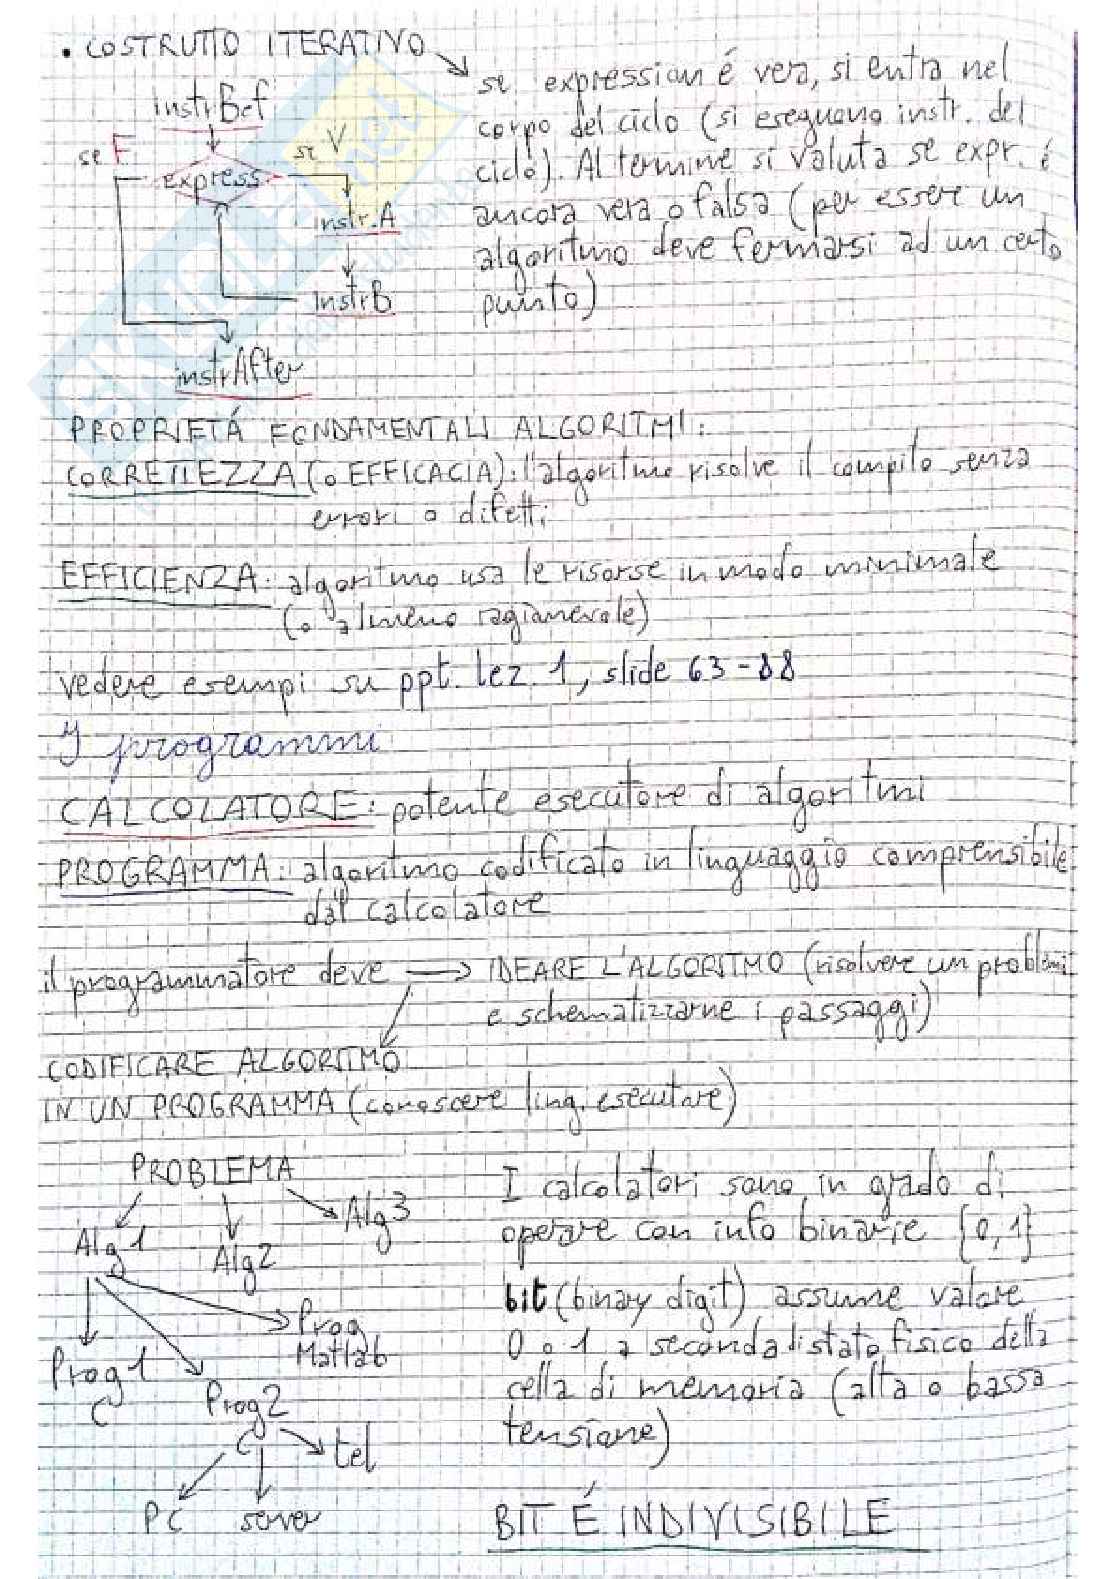 • COSTRUTTO ITERATIVO
se expression é vera, si entra nel
corpo del ciclo (si eseguono instr. del
ciclo). Al termine si valuta se expr. é
ancora vera o falsa (per essere un
algoritmo deve fermarsi ad un certo
punto)
instrBef
se F
se V
express
instr.A
instrB
instrAfter
PROPRIETÁ FONDAMENTALI ALGORITMI:
CORRETTEZZA (o EFFICACIA): l'algoritmo risolve il compito senza
errori o difetti
EFFICIENZA: algoritmo usa le risorse in modo minimale
(o almeno ragionevole)
vedere esempi su ppt. lez. 1, slide 63-88
I programmi
CALCOLATORE: potente esecutore di algoritmi
PROGRAMMA: algoritmo codificato in linguaggio comprensibile
dal calcolatore
il programmatore deve → IDEARE L'ALGORITMO (risolvere un problema
e schematizzarne i passaggi)
CODIFICARE ALGORITMO
IN UN PROGRAMMA (conoscere ling. esecutore)
PROBLEMA
Alg1
Alg2
Alg3
Prog1
C
Prog2
C
Prog
Matlab
PC
server
tel
I calcolatori sono in grado di
operare con info binarie {0,1}
bit (binary digit) assume valore
0 o 1 a seconda di stato fisico della
cella di memoria (alta o bassa
tensione)
BIT É INDIVISIBILE
SKUOLA.net